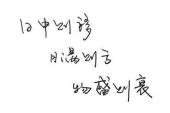 日中则移
月满则亏
物盛则衰